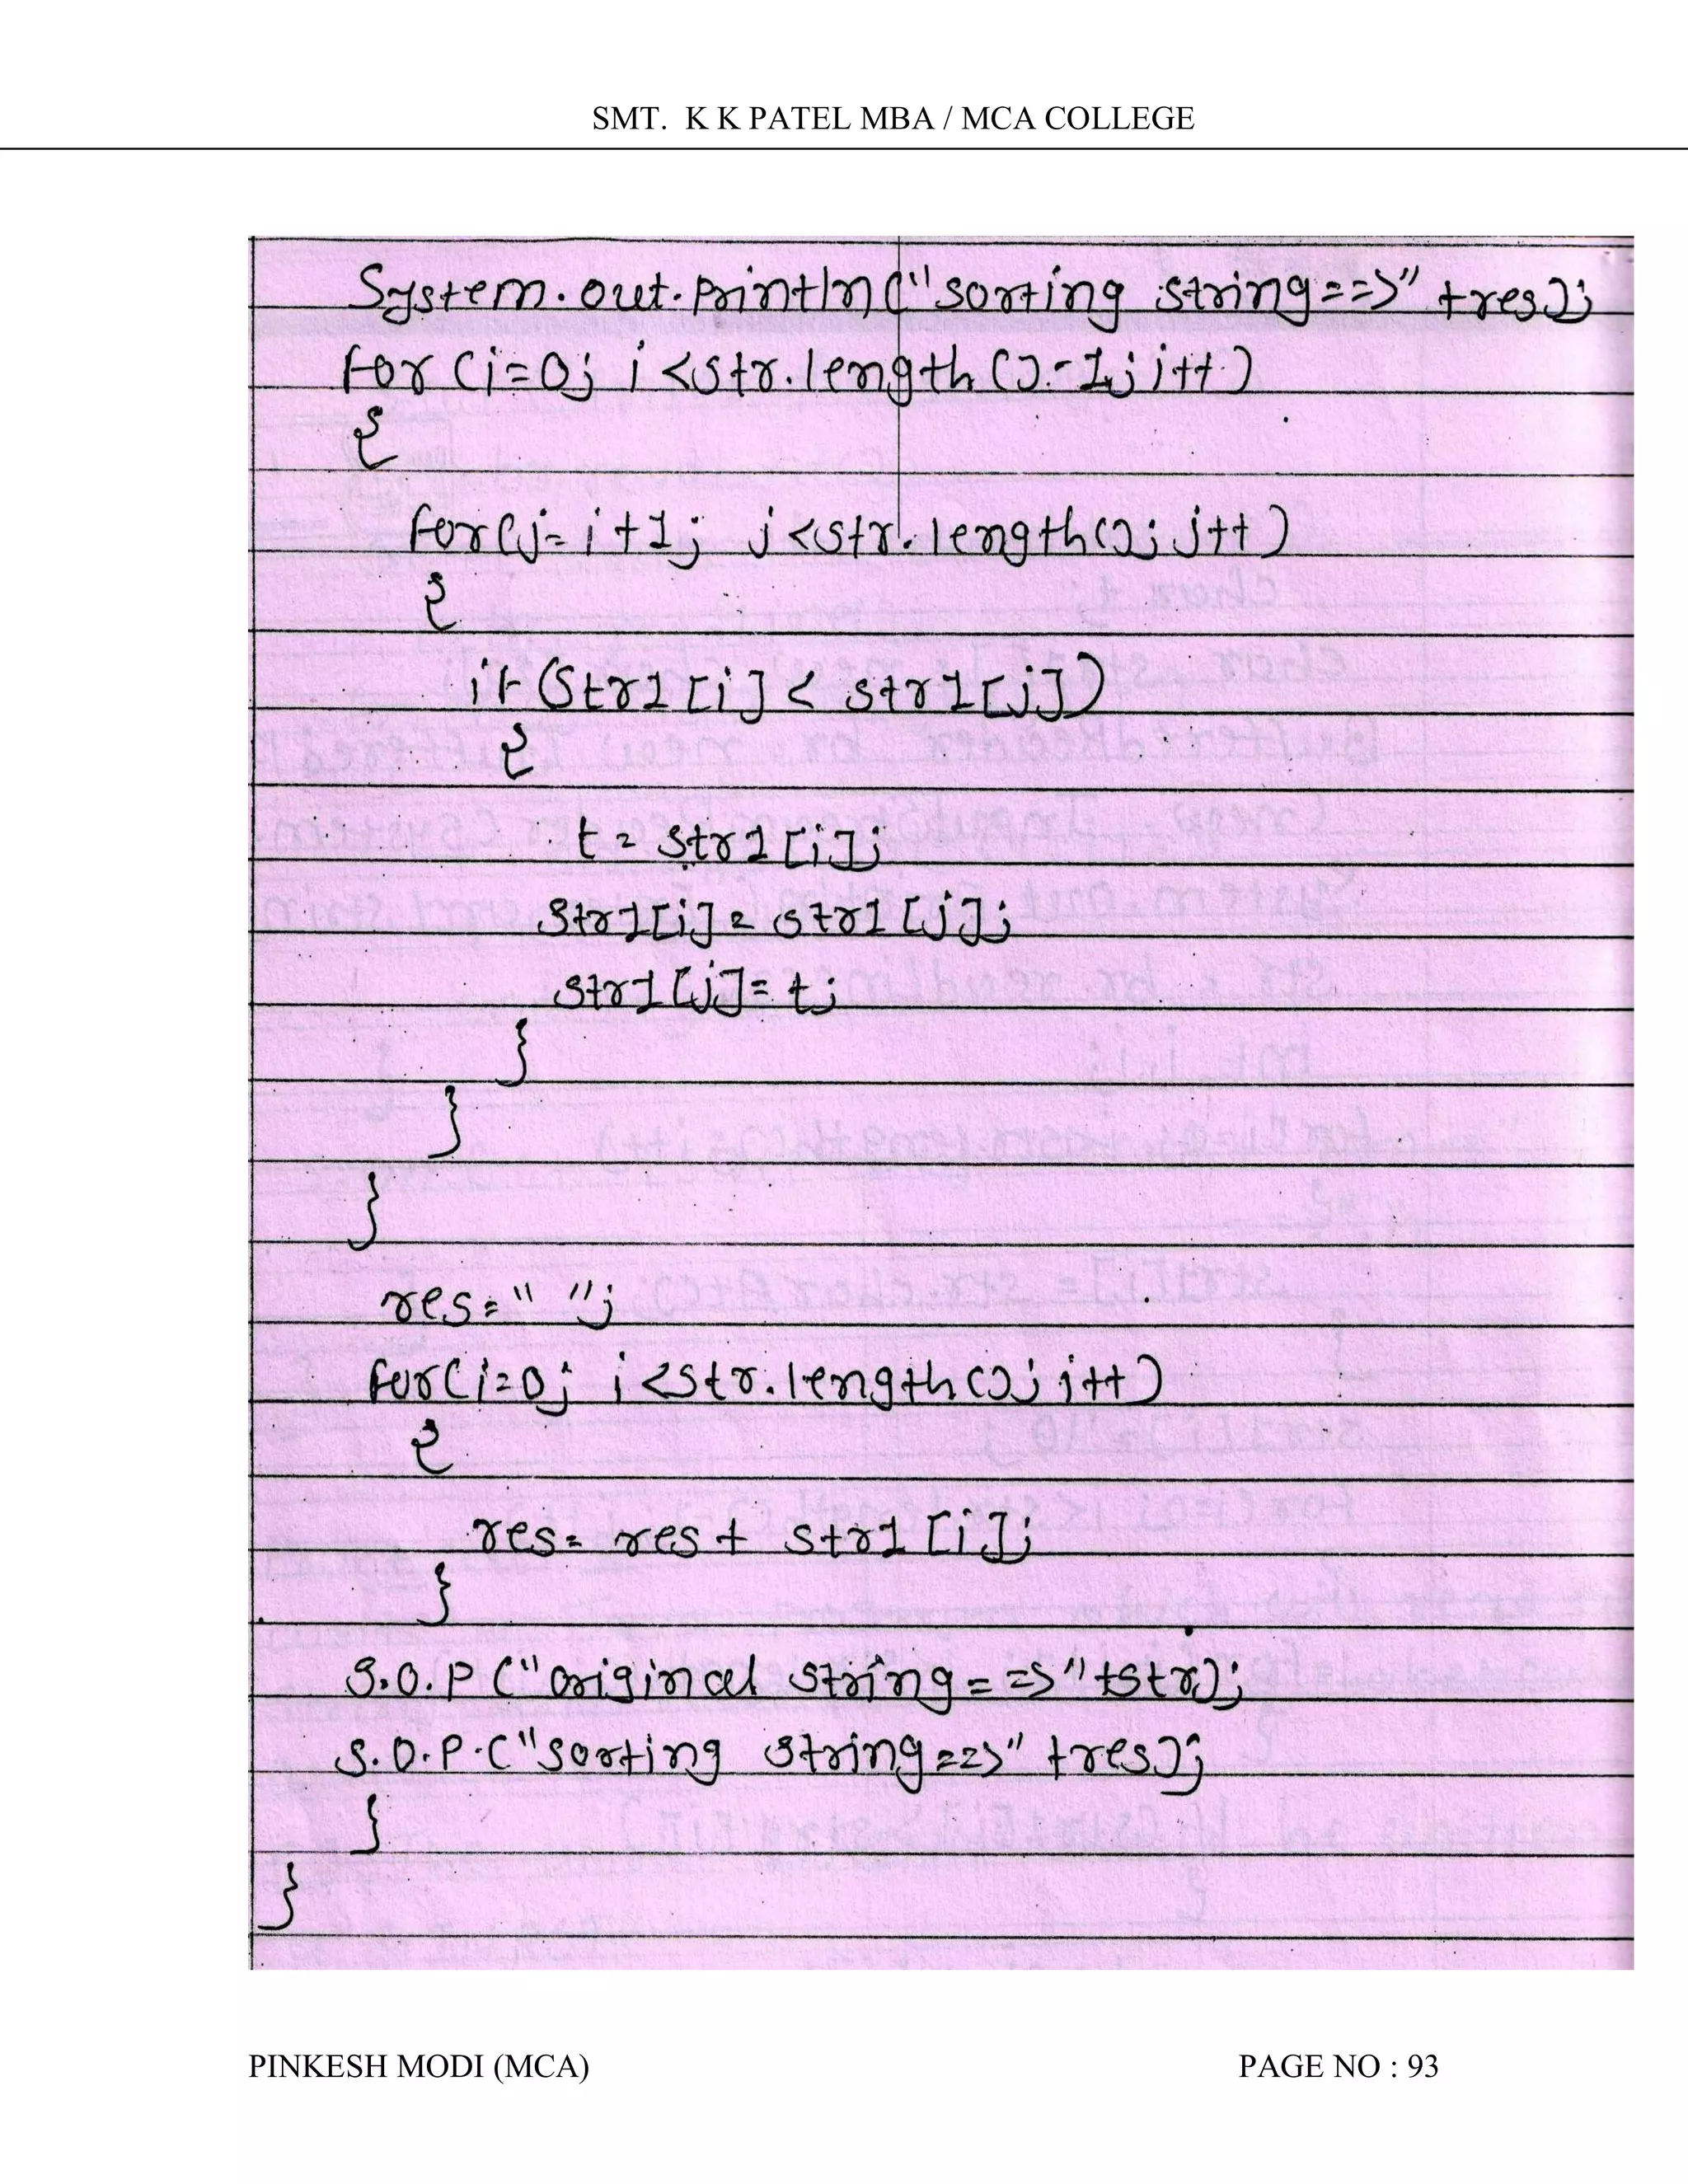 SMT. K K PATEL MBA / MCA COLLEGE
System.out.println("sorting string==>" +res);
for (i=0; i<str.length()-1; i++)
{
for(j=i+1; j<str.length(); j++)
{
if (str1[i] < str1[j])
{
t = str1[i];
str1[i] = str1[j];
str1[j] = t;
}
}
}
res=" ";
for(i=0; i<str.length(); i++)
{
res = res + str1[i];
}
S.O.P ("original string==>"+str);
S.O.P.("sorting string==>" +res);
}
}
PINKESH MODI (MCA) PAGE NO : 93